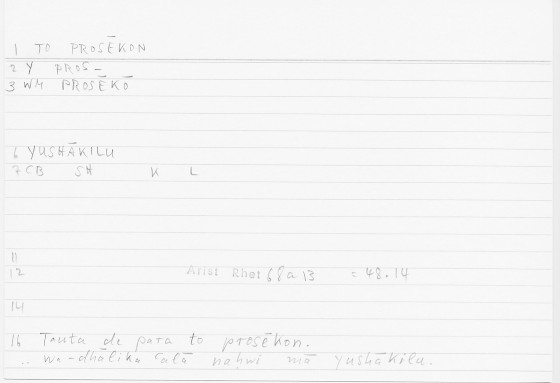 1 TO PROSĒKON
2 Y PROS-
3 WM PROSĒKŌ
6 YUSHĀKILU
7 CB SH K L
11
12 Arist Rhet 68a13 = 48.14
14
16 Tauta de para to prosēkon.
.. wa-dhālika ʿalā nahwi mā yushākilu.